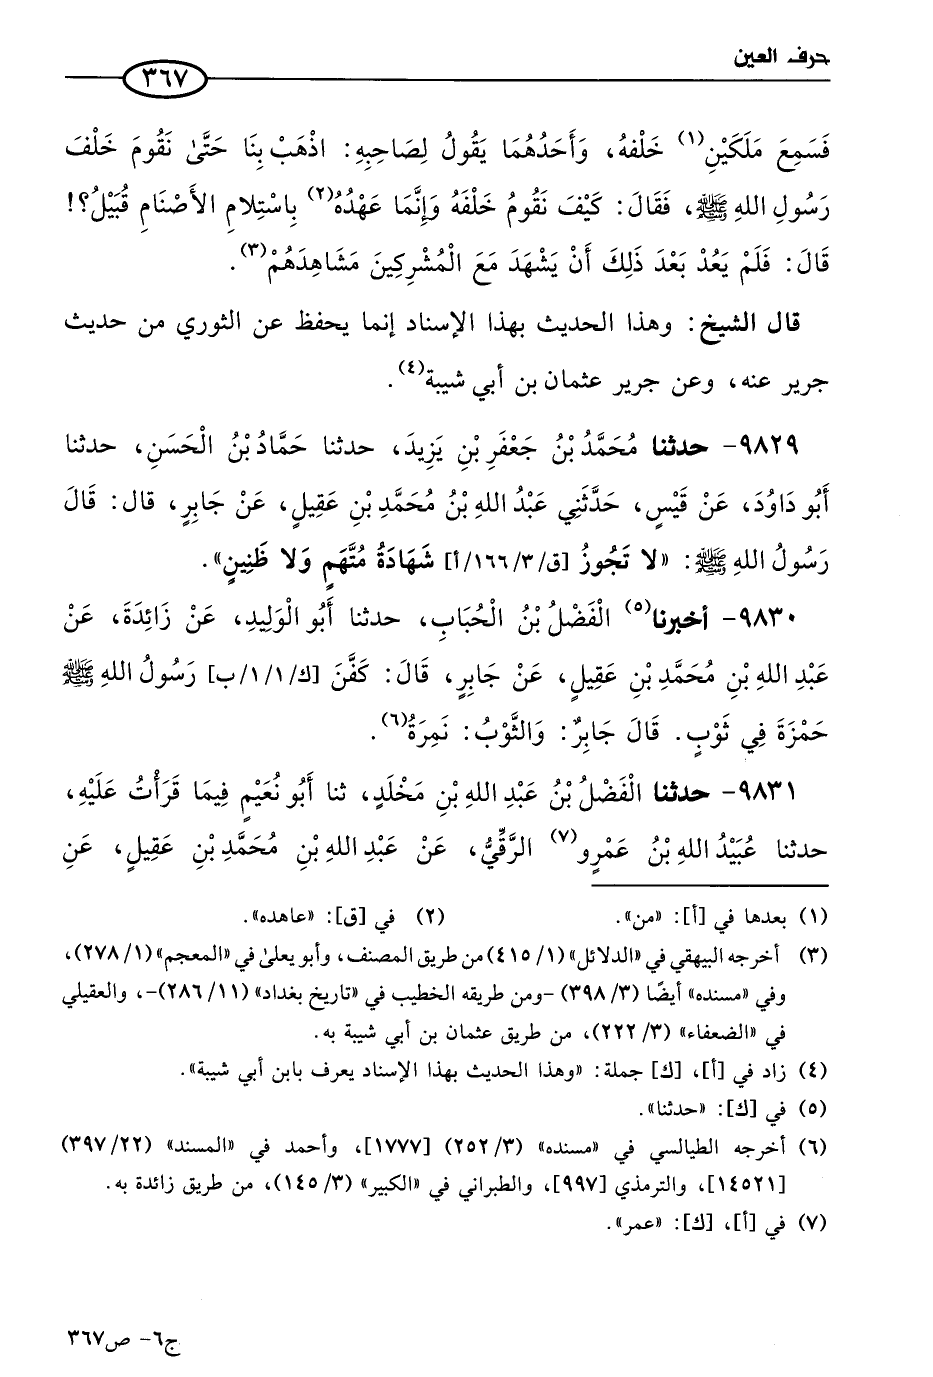 حرف العين
٣٦٧
فَسَمِعَ مَلَكَيْنِ(١) خَلْفَهُ، وَأَحَدُهُمَا يَقُولُ لِصَاحِبِهِ: اذْهَبْ بِنَا حَتَّىٰ نَقُومَ خَلْفَ
رَسُولِ اللهِ ﷺ، فَقَالَ: كَيْفَ نَقُومُ خَلْفَهُ وَإِنَّمَا عَهْدُهُ(٢) بِاسْتِلَامِ الأَصْنَامِ قُبَيْلُ؟!
قَالَ: فَلَمْ يَعُدْ بَعْدَ ذَلِكَ أَنْ يَشْهَدَ مَعَ الْمُشْرِكِينَ مَشَاهِدَهُمْ(٣).
قال الشيخ: وهذا الحديث بهذا الإسناد إنما يحفظ عن الثوري من حديث
جرير عنه، وعن جرير عثمان بن أبي شيبة(٤).
٩٨٢٩- حدثنا مُحَمَّدُ بْنُ جَعْفَرِ بْنِ يَزِيدَ، حدثنا حَمَّادُ بْنُ الْحَسَنِ، حدثنا
أَبُو دَاوُدَ، عَنْ قَيْسٍ، حَدَّثَنِي عَبْدُ اللهِ بْنُ مُحَمَّدِ بْنِ عَقِيلٍ، عَنْ جَابِرٍ، قال: قَالَ
رَسُولُ اللهِ ﷺ: «لا تَجُوزُ [ق/٣/١٦٦/أ] شَهَادَةُ مُتَّهَمٍ وَلا ظَنِينٍ».
٩٨٣٠- أخبرنا(٥) الْفَضْلُ بْنُ الْحُبَابِ، حدثنا أَبُو الْوَلِيدِ، عَنْ زَائِدَةَ، عَنْ
عَبْدِ اللهِ بْنِ مُحَمَّدِ بْنِ عَقِيلٍ، عَنْ جَابِرٍ، قَالَ: كَفَّنَ [ك/١/١/ب] رَسُولُ اللهِ ﷺ
حَمْزَةَ فِي ثَوْبٍ. قَالَ جَابِرٌ: وَالثَّوْبُ: نَمِرَةُ(٦).
٩٨٣١- حدثنا الْفَضْلُ بْنُ عَبْدِ اللهِ بْنِ مَخْلَدٍ، ثنا أَبُو نُعَيْمٍ فِيمَا قَرَأْتُ عَلَيْهِ،
حدثنا عُبَيْدُ اللهِ بْنُ عَمْرِو(٧) الرَّقِّيُّ، عَنْ عَبْدِ اللهِ بْنِ مُحَمَّدِ بْنِ عَقِيلٍ، عَنِ
(١) بعدها في [أ]: «من». (٢) في [ق]: «عاهده».
(٣) أخرجه البيهقي في «الدلائل» (١/ ٤١٥) من طريق المصنف، وأبو يعلىٰ في «المعجم» (١/ ٢٧٨)،
وفي «مسنده» أيضًا (٣/ ٣٩٨) -ومن طريقه الخطيب في «تاريخ بغداد» (١١/ ٢٨٦)-، والعقيلي
في «الضعفاء» (٣/ ٢٢٢)، من طريق عثمان بن أبي شيبة به.
(٤) زاد في [أ]، [ك] جملة: «وهذا الحديث بهذا الإسناد يعرف بابن أبي شيبة».
(٥) في [ك]: «حدثنا».
(٦) أخرجه الطيالسي في «مسنده» (٣/ ٢٥٢) [١٧٧٧]، وأحمد في «المسند» (٢٢/ ٣٩٧)
[١٤٥٢١]، والترمذي [٩٩٧]، والطبراني في «الكبير» (٣/ ١٤٥)، من طريق زائدة به.
(٧) في [أ]، [ك]: «عمر».
ج٦- ص٣٦٧